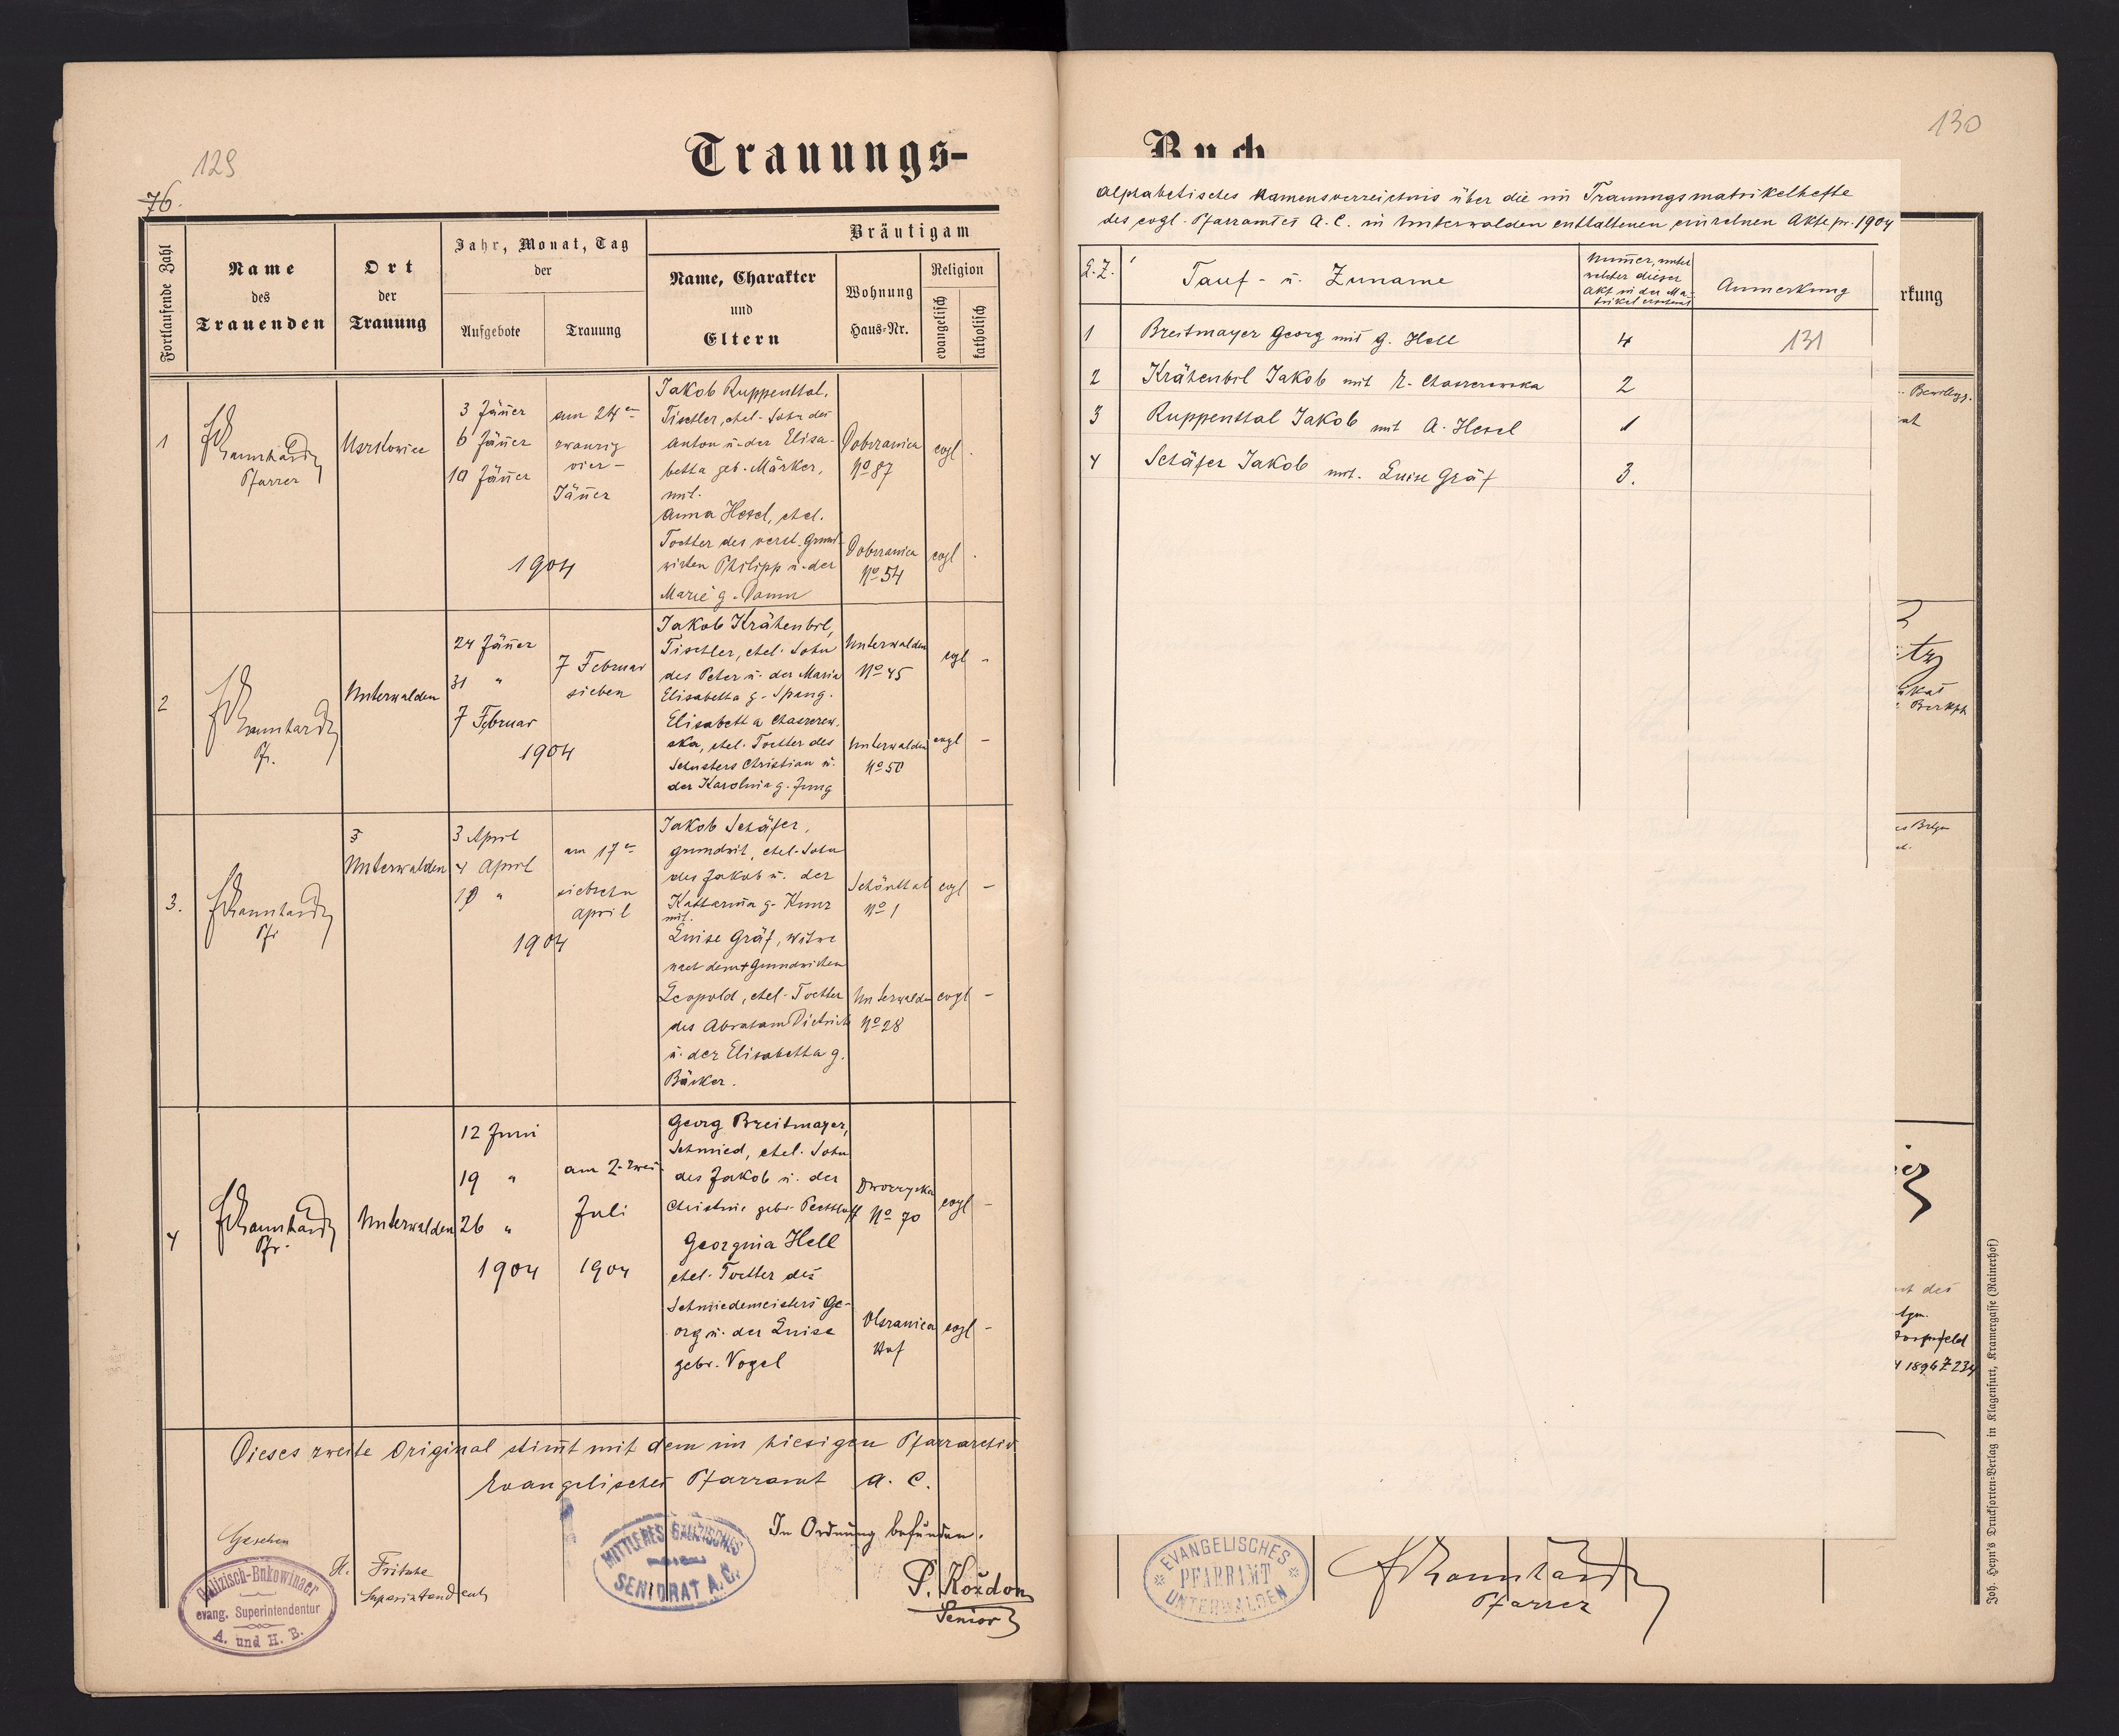 129
76.
Trauungs-
Fortlaufende Zahl
Name
des
Trauenden
Ort
der
Trauung
Jahr, Monat, Tag
der
Aufgebote
Trauung
Bräutigam
Name, Charakter
und
Eltern
Wohnung
Haus-Nr.
Religion
evangelisch
katholisch
1
Pfarrer
3 Jän̄er
6 Jän̄er
10 Jän̄er
am 24
zwanzig
vier-
Jän̄er
1904
Jakob Ruppenthal,
Tischler, ehel. Sohn des
Anton u. der Elisa-
betha geb. Märker,
mit.
Anna Hesel, ehel.
Tochter des verst. Grund-
wirten Philipp u. der
Marie g. Damm
Dobrzanica
No 87
evgl
Dobrzanica
No 54
evgl
2
Pfr.
Unterwalden
24 Jän̄er
31 "
7 Februar
7 Februar
sieben
1904
Jakob Krähenbil,
Tischler, ehel. Sohn
des Peter u. der Maria
Elisabetha g. Spang.
Elisabetha Chaszczew-
ska, ehel. Tochter des
Schusters Christian u.
der Karolina g. Jung
Unterwalden
No 45
evgl -
Unterwalden
No 50
evgl -
3.
Pfr
Unterwalden
3 April
4 April
10 "
am 17
siebzehn
April
1904
Jakob Schäfer,
grundwit, ehel. Sohn
des Jakob u. der
Katharina g. Kunz
mit.
Luise Gräf, Witwe
nach dem + Grundwirten
Leopold, ehel. Tochter
des Abraham Dietrich
u. der Elisabetha g.
Bäcker.
Schönthal
No 1
evgl -
Unterwalden
No 28
evgl -
4
Pfr.
Unterwalden
12 Juni
19 "
26 "
1904
am 2. zwei
Juli
1904
Georg Breitmayer,
Schmied, ehel. Sohn
des Jakob u. der
Christine gebr.
Georgina Hell
ehel. Tochter des
Schmiedemeisters Ge-
org u. der Luise
gebr. Vogel
No 70
evgl -
Hof
evgl -
Dieses zweite Original stim̄t mit dem im hiesigen Pfarrarchiv
Evangelisches Pfarramt A. C.
Gesehen
H. Fritsche
Superintendent
Galizisch-Bukowinaer
evang. Superintendentur
A. und H. B.
MITTLERES GALIZISCHES
SENIORAT A. C.
In Ordnung befunden.
P. Kożdon
Senior
130
Buch
Alphabetisches Namensverzeichnis über die im Trauungsmatrikelhefte
des evgl. Pfarramtes A. C. in Unterwalden enthaltenen einzelnen Akte pr. 1904
L. Z.
Tauf- u. Zuname
Num̄er, unter
welcher dieser
Akt in der Ma-
trikel erscheint
Anmerkung
1 Breitmayer Georg mit G. Hell 4 131
2 Krähenbil Jakob mit E. Chaszczewska 2
3 Ruppenthal Jakob mit A. Hesel 1
4 Schäfer Jakob mit. Luise Gräf 3.
rkung
1896 Z 234
EVANGELISCHES
PFARRAMT
UNTERWALDEN
Pfarrer
Joh. Heyn's Drucksorten-Verlag in Klagenfurt, Kramergasse (Rainerhof)